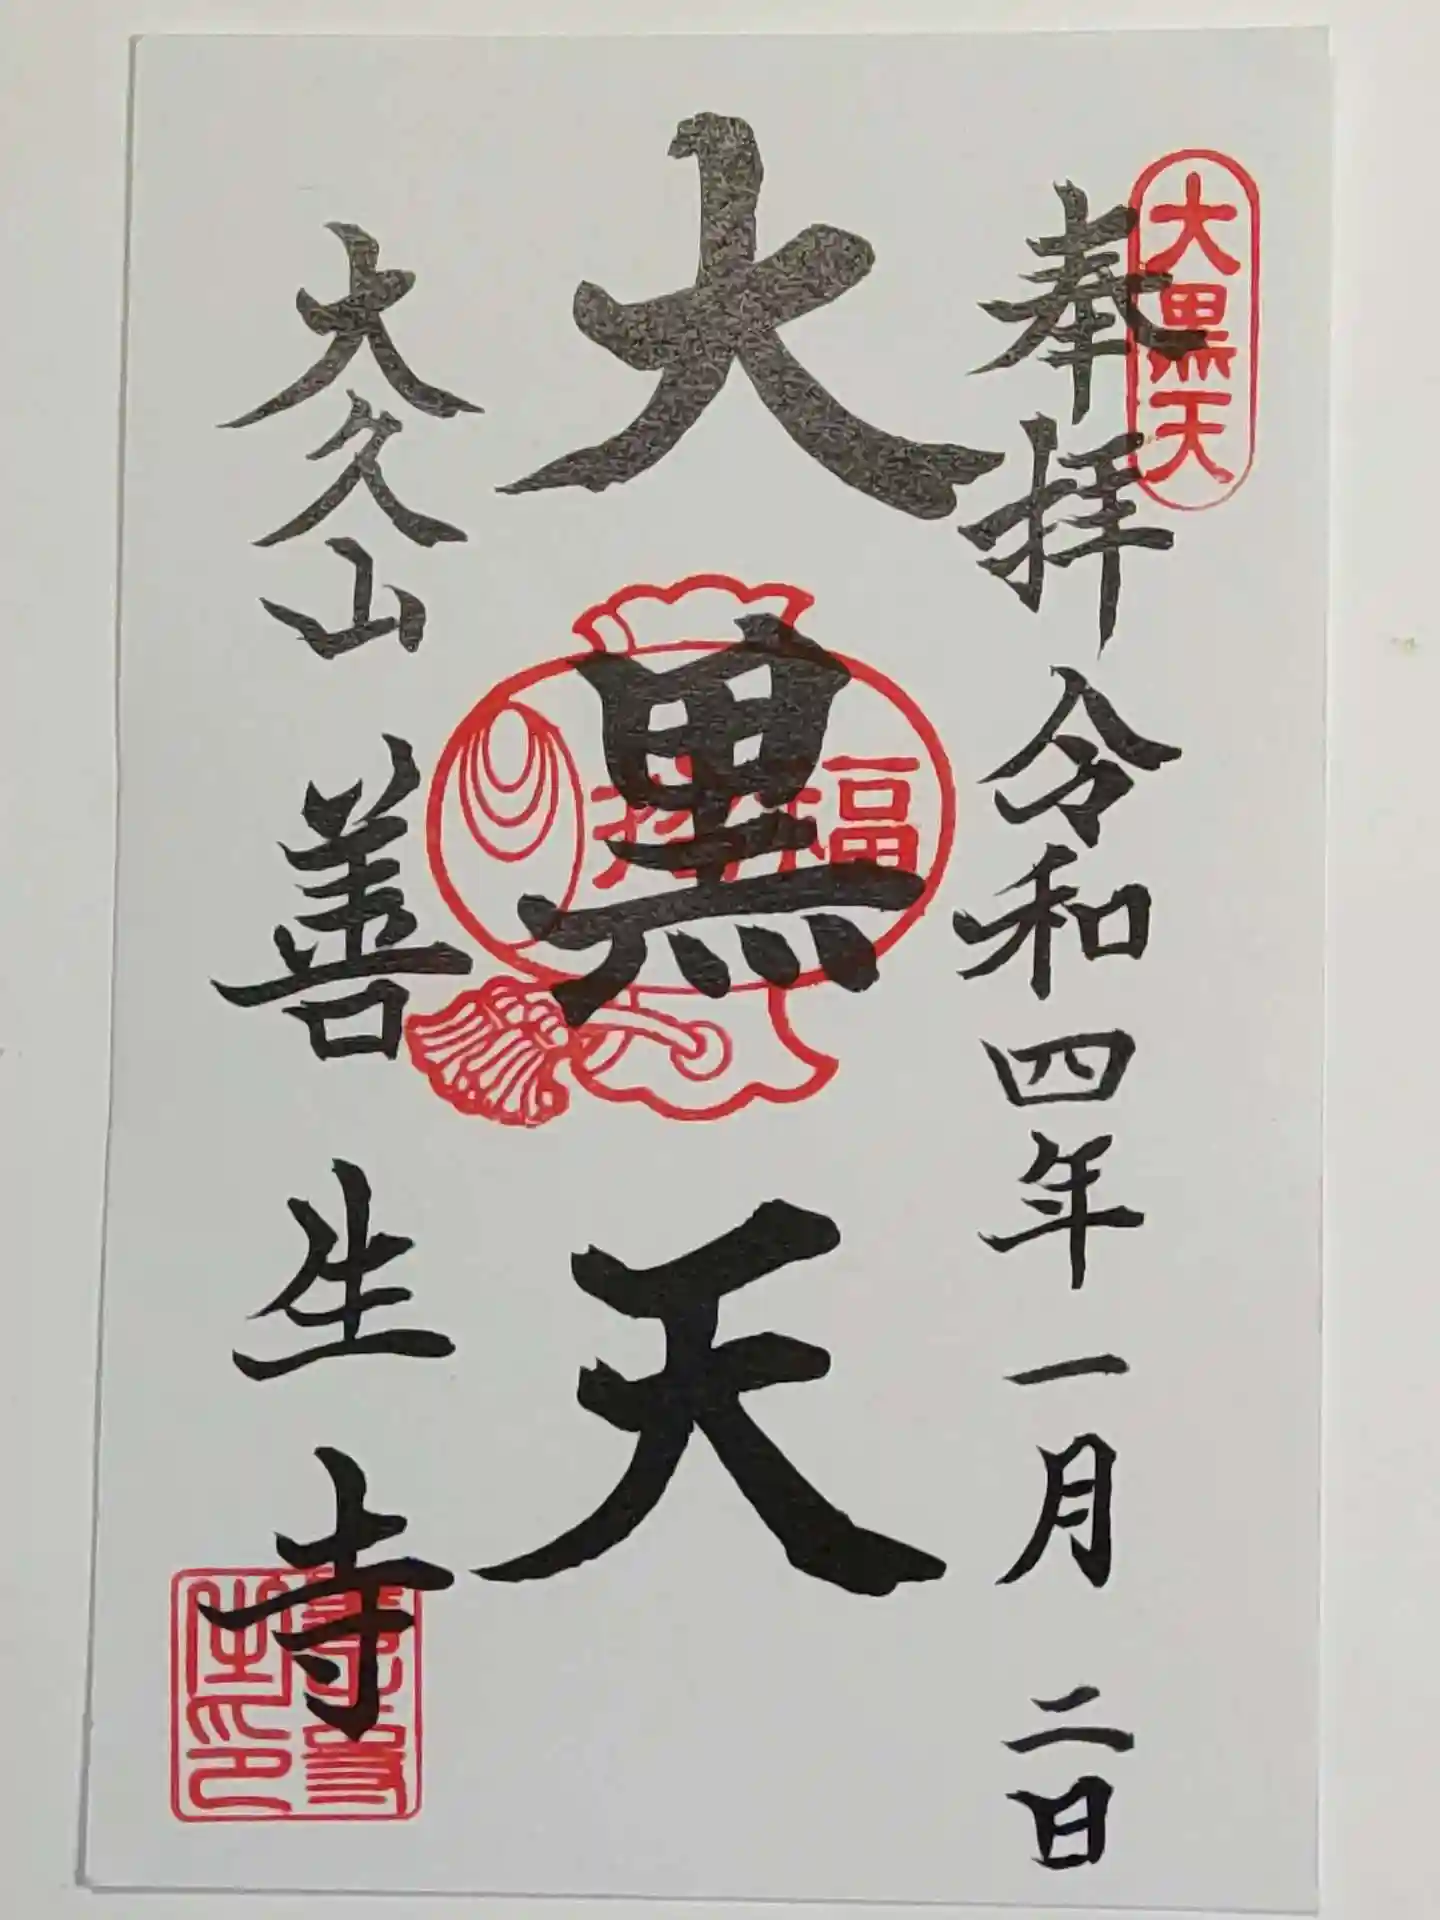 大黒天
奉拝 令和四年一月二日
大黒天
福
大久山 善生寺